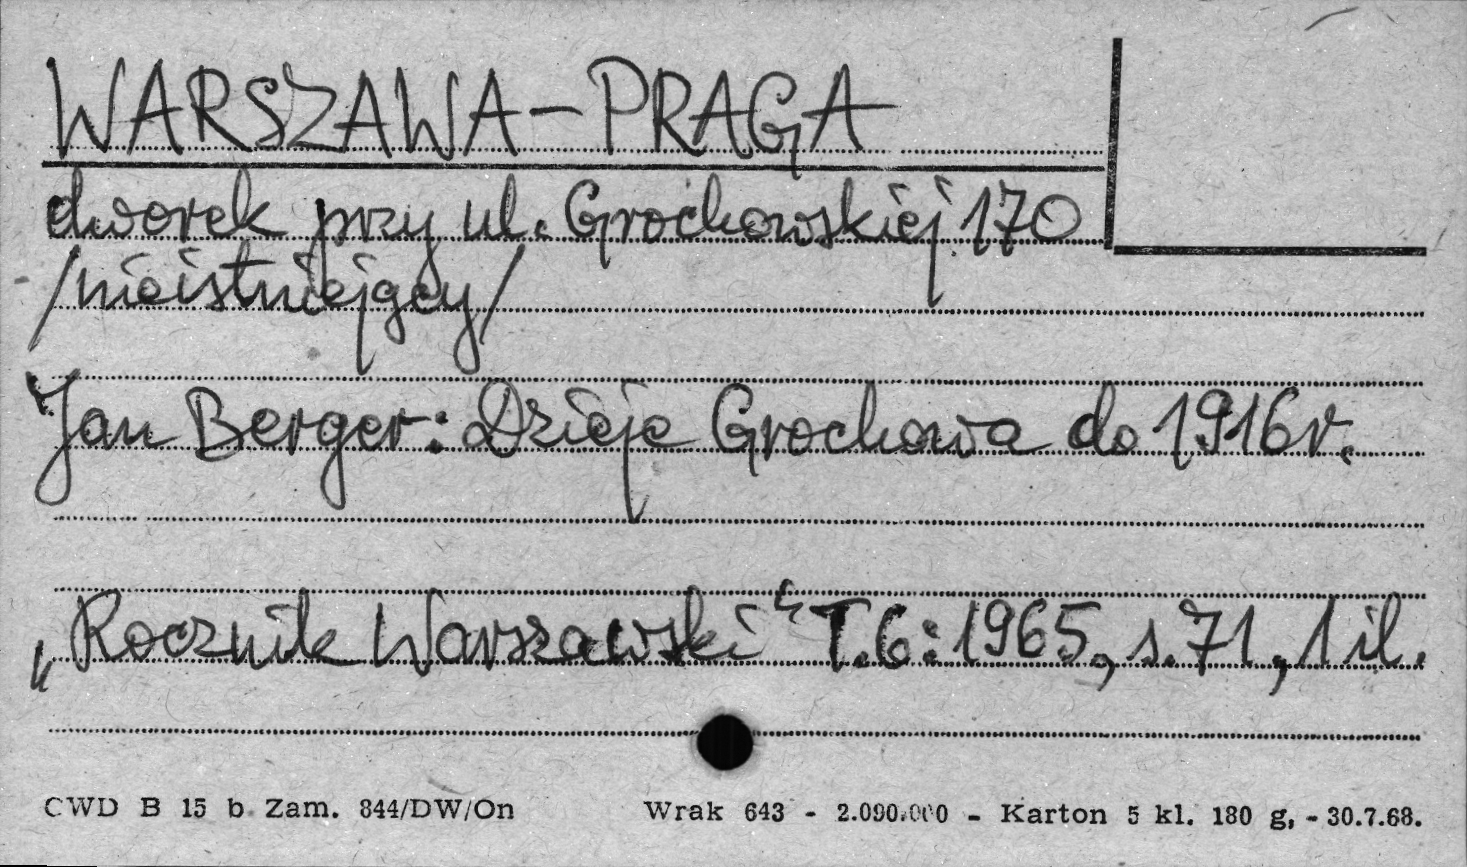 WARSZAWA-PRAGA
dworek przy ul. Grochowskiej 170
/nieistniejący/
Jan Berger: Dzieje Grochowa do 1916 r.
„Rocznik Warszawski" T.6: 1965, s.71, 1 il.
CWD B 15 b Zam. 844/DW/On Wrak 643 - 2.090.000 - Karton 5 kl. 180 g, - 30.7.68.